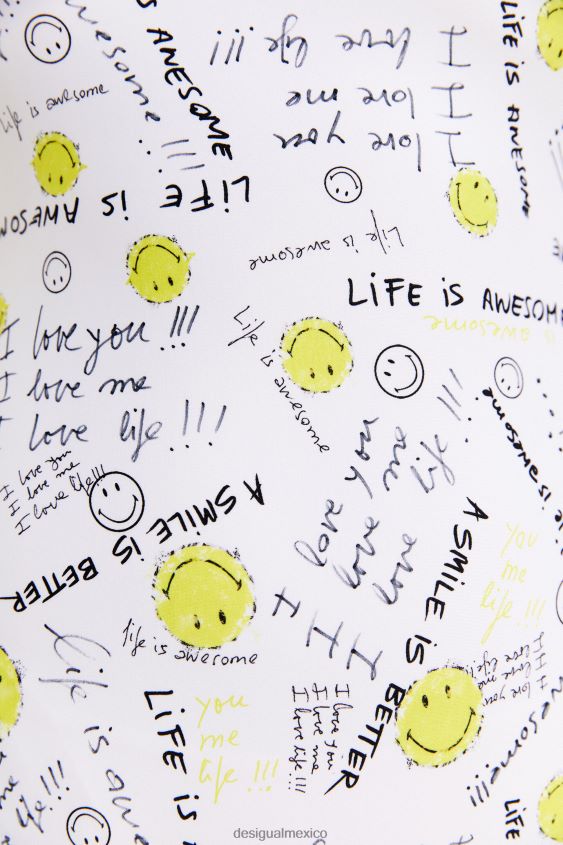 IS AWESOME
awesome !!!
I love life !!!
I love me
I love you
LiFE iS AWESOME
life is awesome
LiFE iS AWESOM
Life is awesome
LiFE iS AWESOME
is awesome
I love you !!!
I love me
I love life !!!
Life is awesome
e is awesome
I love you
I love me
I love life!!!
A SMiLE iS BETTER
I love you
I love me
I love life !!!
A SMiLE iS BETTER
you
me
life !!!
life is awesome
I love you
I love me
I love life!!
Life is awe
LiFE iS
you
me
life !!!
I love you
I love me
I love life!!!
wesome!!!
life !!!
LiFE
desigualmexico